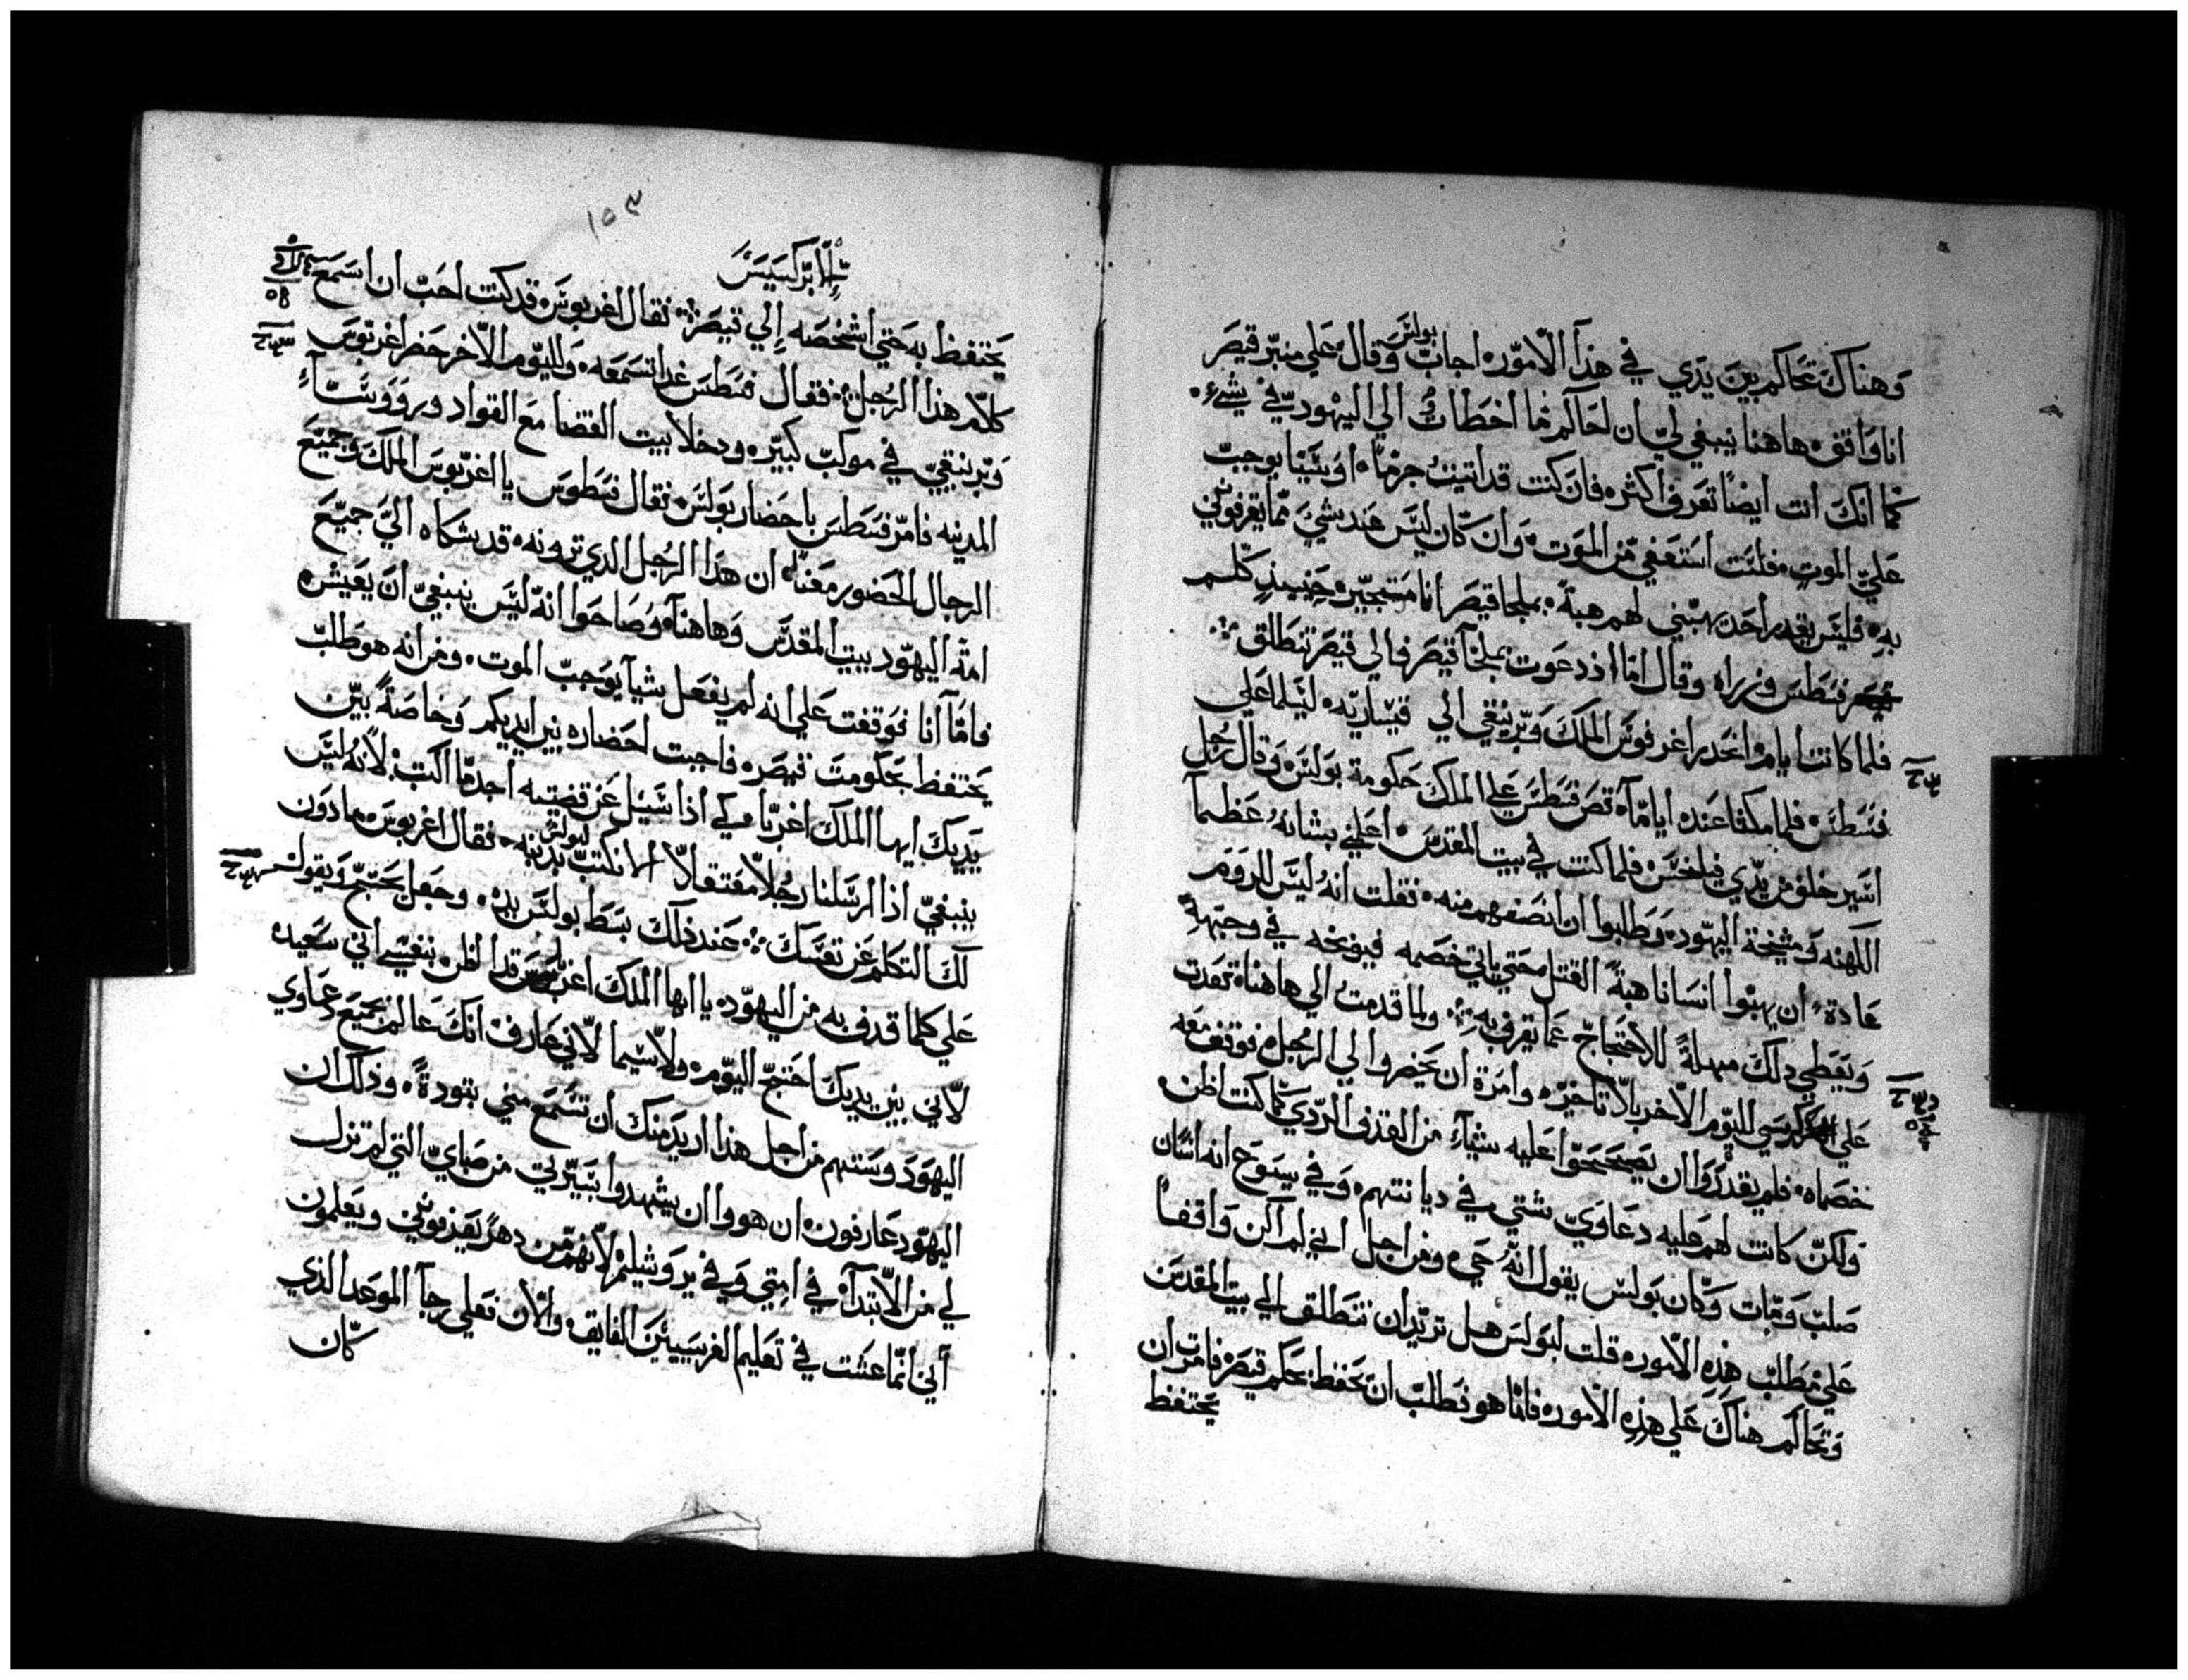 وهناك تحاكم بين يدي في هذا الامور، اجاب بولس وقال، علي منبر قيصر
انا واقف، هاهنا ينبغي لي ان احاكم فما اخطات الي اليهود في شيء.
كما انك انت ايضا تعرف اكثر، فان كنت قد اتيت جرما، او شيئا يوجب
علي الموت، فلست استعفي من الموت، وان كان ليس عند شي مما يقرفوني
به، فليس يقدر احد يهبني لهم هبة، بملجا قيصر انا مستجير، حينيذ كلم
فسطس وزراه وقال اما اذ دعوت بملجا قيصر فالي قيصر تنطلق
فلما كانت ايام، انحدر اغرفوس الملك وبرنيقي الي قيساريه، ليسلما علي
فسطس، فلما مكثا عنده اياما، قص فسطس علي الملك حكومة بولس، وقال رجل
اسير خلف من يدي فيلخس، فلما كنت في بيت المقدس، اعلمني بشانه عظما
الكهنه ومشيخة اليهود، وطلبوا ان انصفهم منه، فقلت انه ليس للروم
عادة، ان يهبوا انسانا هبة القتل، حتي ياتي خصمه فيوبخه في وجهه
ويعطي ذلك مهلة للاحتجاج عما يقرف به، ولما قدمت الي هاهنا، قعدت
علي كرسي لليوم الاخر بلا تاخير، وامرة ان يحضروا الي الرجل، فوقف معه
خصماه، فلم يقدروا ان يصححوا عليه شياء من القذف الردي كما كنت اظن،
ولكن كانت لهم عليه دعاوي شتي في ديانتهم، وفي يسوع انه انسان
صلب ومات وكان بولس يقول انه حي، ومن اجل اني لم اكن واقفا
علي مطلب هذه الامور، قلت لبولس هل تريد ان تنطلق الي بيت المقدس
وتحاكم هناك علي هذه الامور، فاما هو فطلب ان يحفظ بحكم قيصر، فامرت ان
يحتفظ
الابركسيس
١٥٣
يحتفظ به حتي اشخصه الي قيصر، فقال اغربوس، قد كنت احب ان اسمع
كلام هذا الرجل، فقال فسطس غدا تسمعه، ولليوم الاخر حضر اغربوس
وبرنيقي في موكب كبير، ودخلا بيت القضا مع القواد وروؤساء
المدينه فامر فسطس باحضار بولس، فقال فسطوس يا اغربوس الملك وجميع
الرجال الحضور معنا، ان هذا الرجل الذي ترونه، قد شكاه الي جميع
امة اليهود ببيت المقدس وهاهنا، وصاحوا انه ليس ينبغي ان يعيش،
فاما انا فوقفت علي انه لم يفعل شيا يوجب الموت، ومن انه هو طلب
يحتفظ بحكومة قيصر، فاجبت احضاره بين ايديكم وخاصة بين
يديك ايها الملك اغربا، كي اذا سيل عن قضيته اجد ما اكتب، لانه ليس
ينبغي اذا ارسلنا رجلا معتقلا الا نكتب بذنبه، فقال اغربوس، ماذون
لك التكلم عن نفسك، عند ذلك بسط بولس يده، وجعل يحتج ويقول
علي كلما قدف به من اليهود، يا ايها الملك اغربا قد اظن بنفسي اني سعيد،
لاني بين يديك احتج اليوم، ولاسيما لاني عارف انك عالم بجميع دعاوي
اليهود وسنتهم من اجل هذا اريد منك ان تسمع مني بتودة، وذلك ان
اليهود عارفون، ان هووا ان يشهدوا بسيرتي من صباي التي لم تزل
لي من الابتداء في امتي وفي يروشيلم، لانهم من دهر يعرفونني ويعلمون
اني انما عشت في تعليم الفريسيين الفايق، والان فعلي رجا الموعد الذي
كان